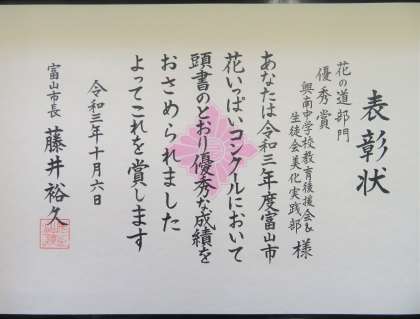 表彰状
花の道部門
優秀賞
興南中学校教育後援会&
生徒会美化実践部 様
あなたは令和三年度富山市
花いっぱいコンクールにおいて
頭書のとおり優秀な成績を
おさめられました
よってこれを賞します
令和三年十月六日
富山市長 藤井裕久